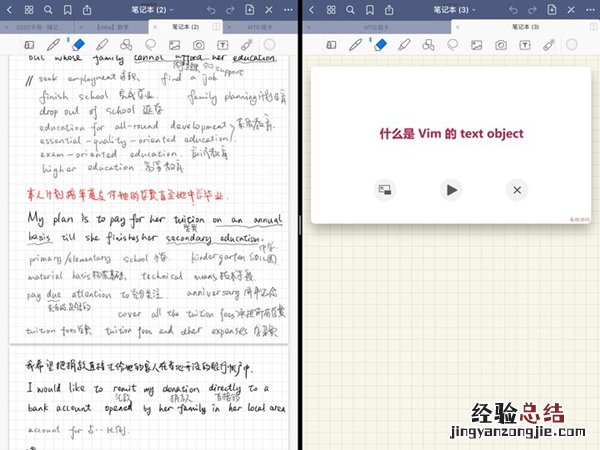 笔记本 (2)
but whose family cannot afford her education.
support
// seek employment 求职 find a job
finish school 完成学业 family planning 计划生育
drop out of school 退学
education for all-round development
essential-quality-oriented education 素质教育
exam-oriented education 应试教育
higher education 高等教育
My plan is to pay for her tuition on an annual
学费
basis till she finishes her secondary education.
中学
primary/elementary school 小学 kindergarten (幼儿园)
material basis 物质基础 technical means 技术手段
pay due attention to 充分关注 anniversary 周年纪念
cover all the tuition fees
tuition fees 学费 tuition fees and other expenses
I would like to remit my donation directly to a
汇款 捐款 直接的
bank account opened by her family in her local area
account for 占…比例
笔记本 (3)
MTG组卡
笔记本 (3)
什么是 Vim 的 text object
经验总结
jingyanzongjie.com